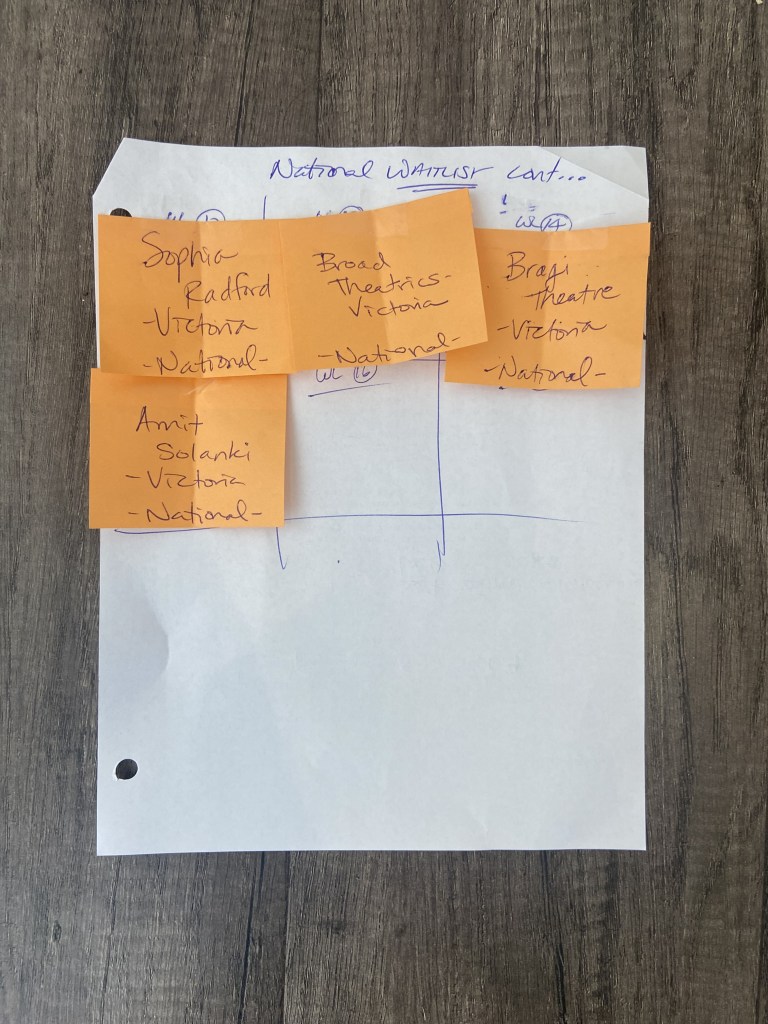 National WAITLIST cont...
WL 14
Sophia
Radford
-Victoria
-National-
Broad
Theatrics-
Victoria
-National-
Bragi
Theatre
-Victoria
-National-
WL 16
Amit
Solanki
-Victoria
-National-